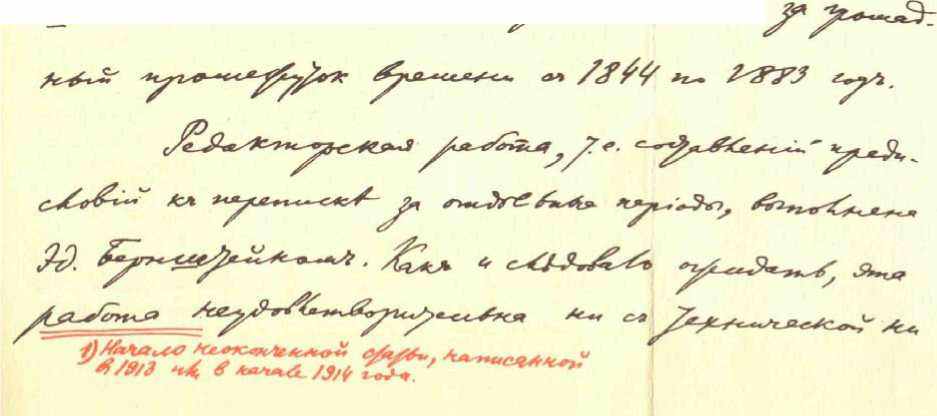 за громад-
ный промежуток времени съ 1844 по 1883 годъ.
Редакторская работа, т.е. составленiй преди-
словiй къ перепискѣ за отдѣльные перiоды, выполнена
Эд. Бернштейномъ. Какъ и слѣдовало ожидать, эта
работа неудовлетворительна ни съ технической ни
1) Начало неоконченной статьи, написанной
в 1913 или в начале 1914 года.